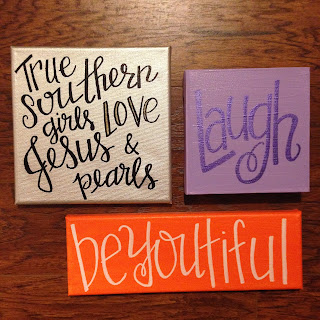 True
Southern
girls LOVE
Jesus &
pearls
Laugh
beyoutiful